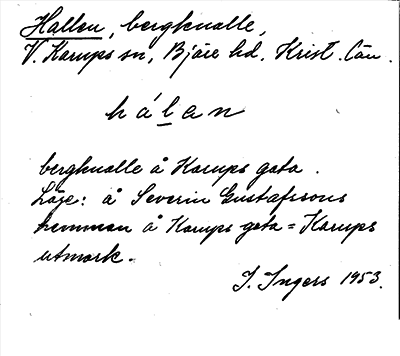 Hallen, bergknalle,
V. Karups sn, Bjäre hd. Krist. län.
hálan
bergknalle å Karups gata.
Läge: å Severin Gustafssons
hemman å Karups gata = Karups
utmark.
I. Ingers 1953.